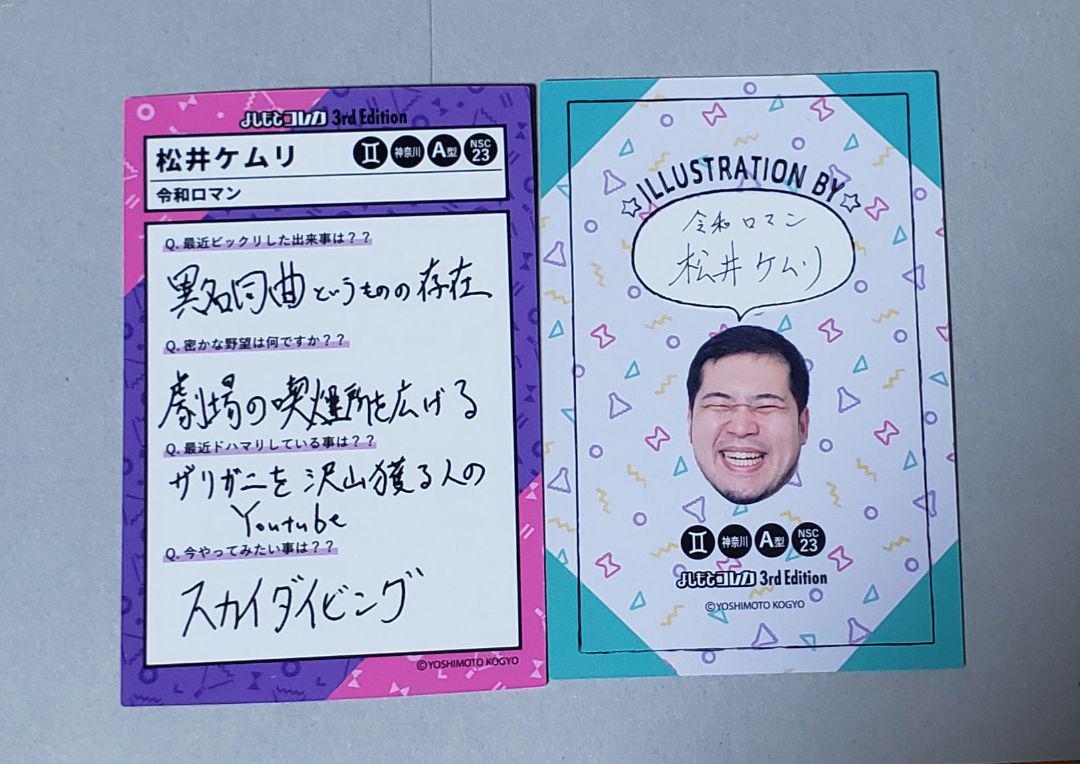 よしもとコレカ 3rd Edition
松井ケムリ
♊ 神奈川 A型 NSC 23
令和ロマン
Q. 最近ビックリした出来事は？？
異名同曲というものの存在
Q. 密かな野望は何ですか？？
劇場の喫煙所を広げる
Q. 最近ドハマりしている事は？？
ザリガニを沢山獲る人の
Youtube
Q. 今やってみたい事は？？
スカイダイビング
©YOSHIMOTO KOGYO
ILLUSTRATION BY
令和ロマン
松井ケムリ
♊ 神奈川 A型 NSC 23
よしもとコレカ 3rd Edition
©YOSHIMOTO KOGYO